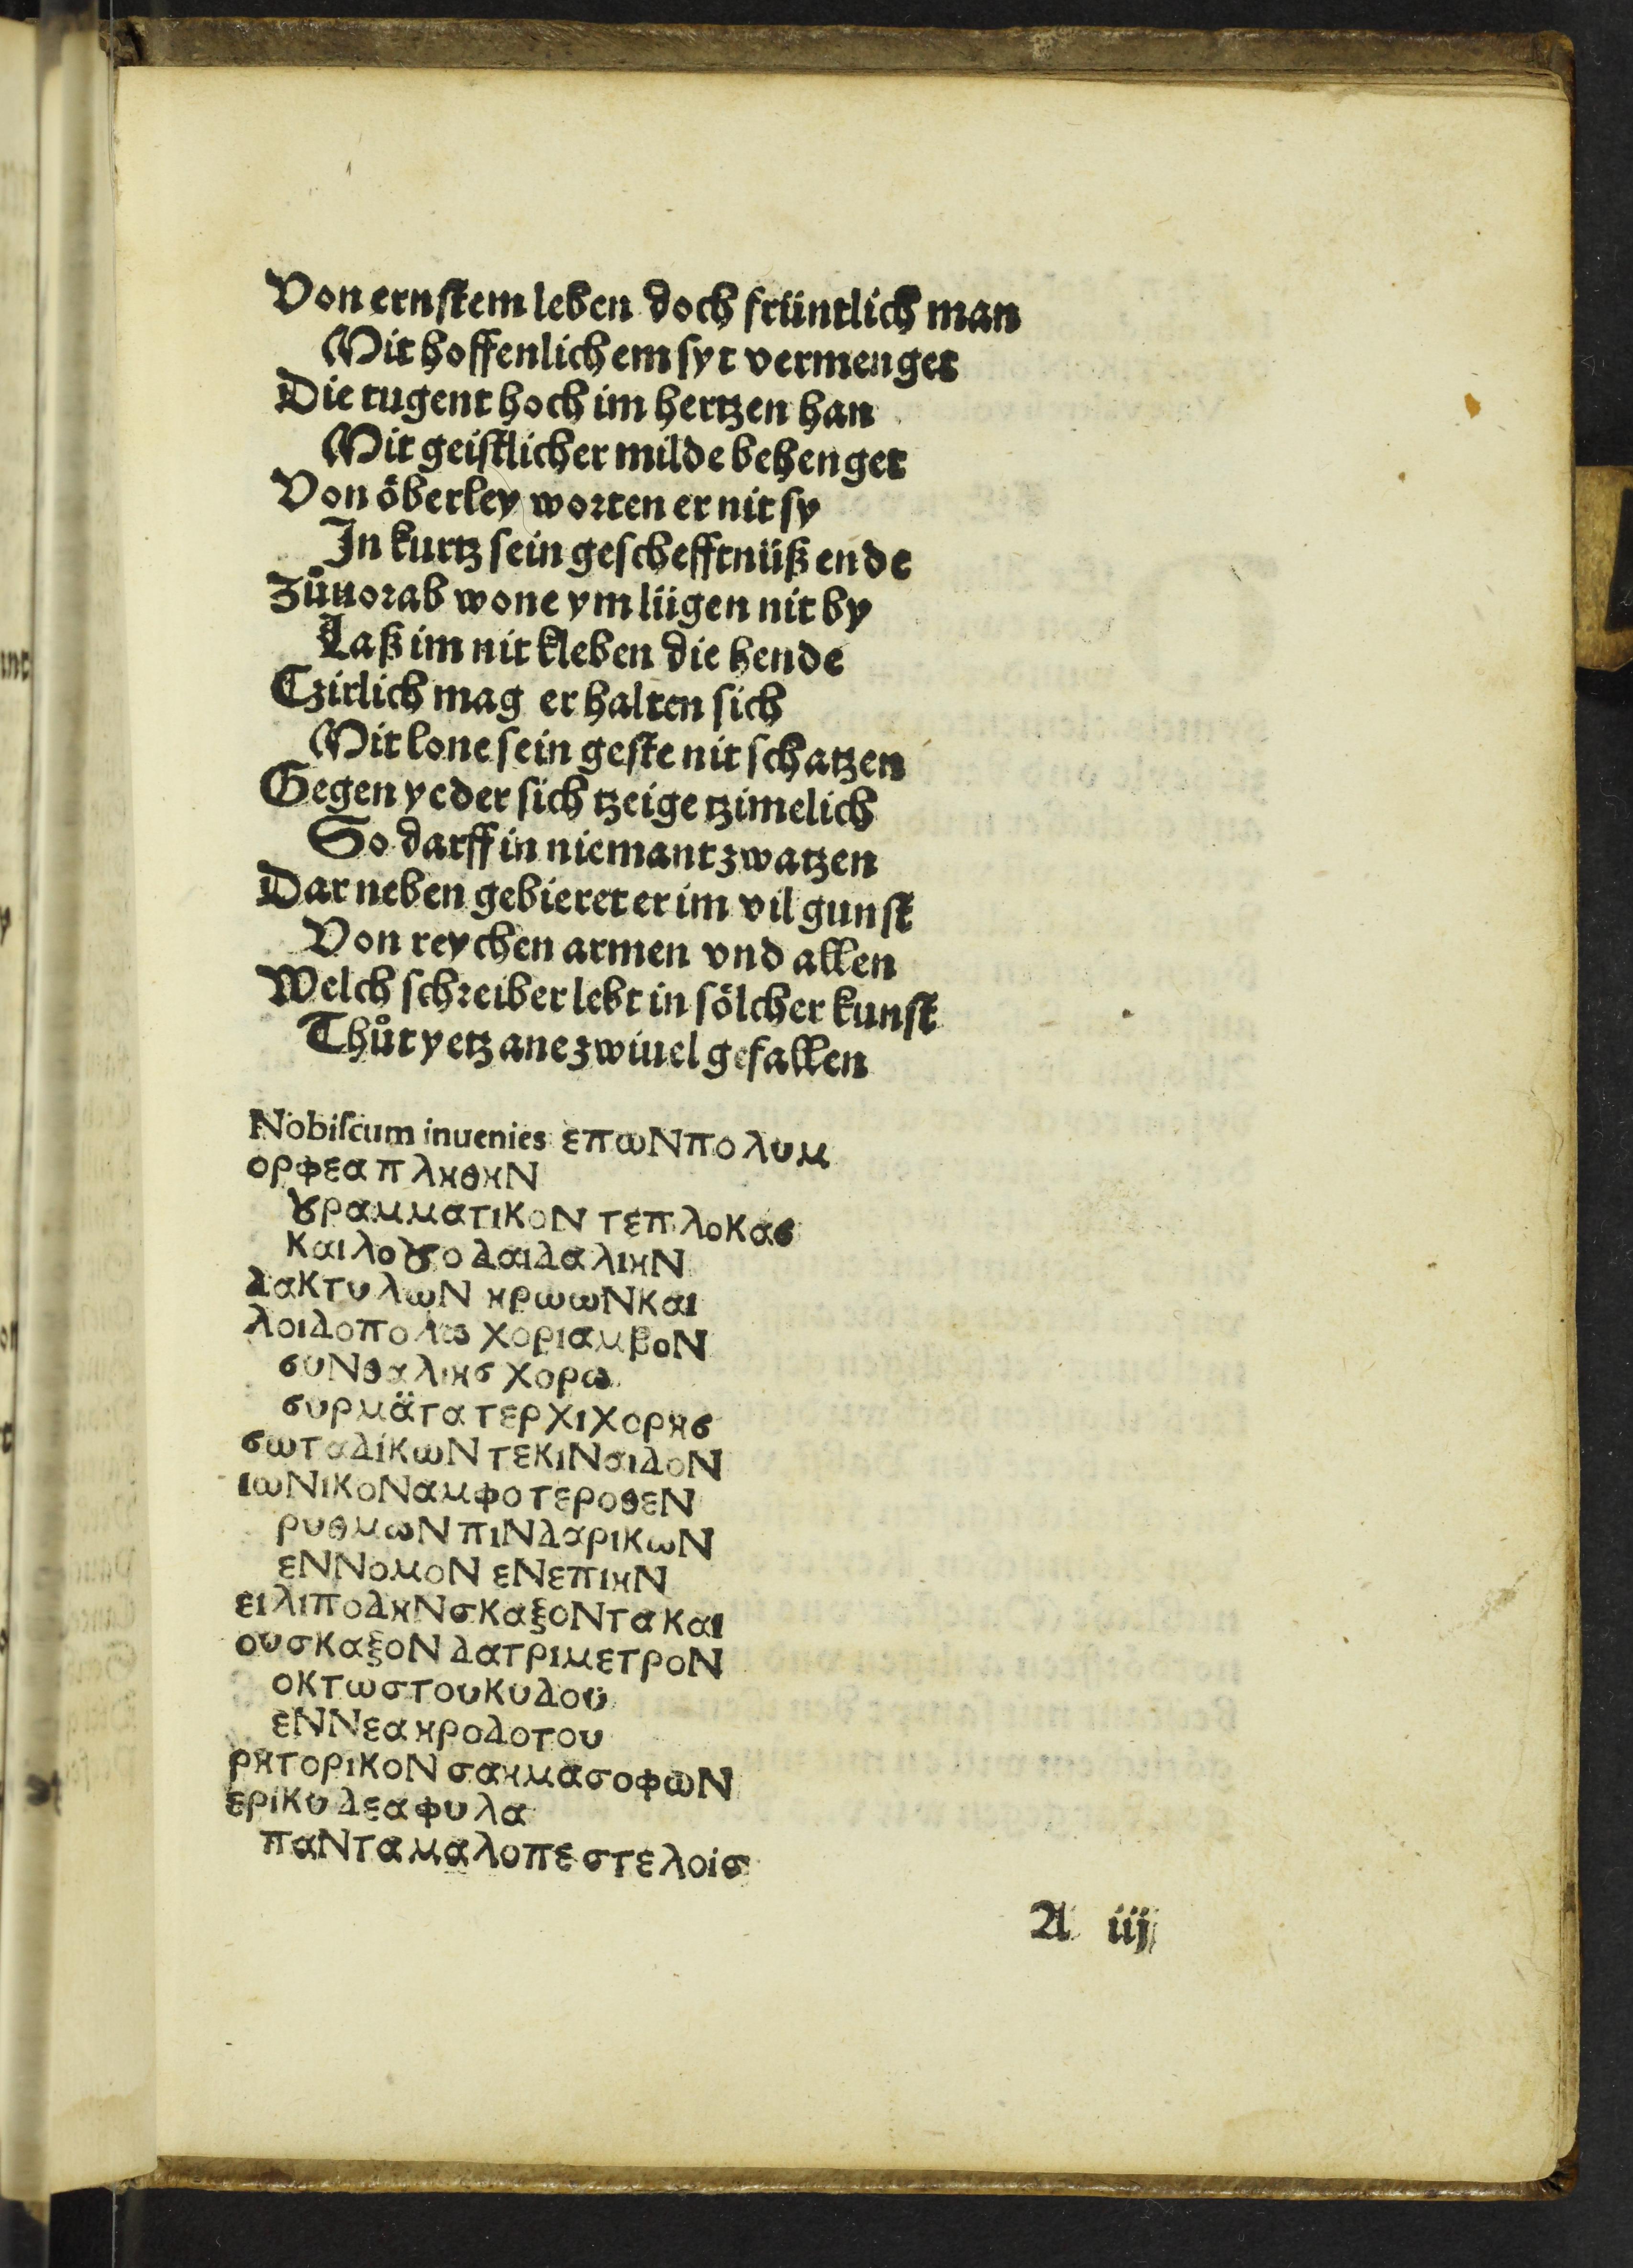 Von ernstem leben doch früntlich man
Mit hoffenlichem syt vermenget
Die tugent hoch im hertzen han
Mit geistlicher milde behenget
Von öberley worten er nit sy
In kurtz sein geschefftnüß ende
Zůuorab wone ym lügen nit by
Laß im nit kleben die hende
Tzirlich mag er halten sich
Mit lone sein geste nit schatzen
Gegen yeder sich tzeige tzimelich
So darff in niemant zwatzen
Dar neben gebieret er im vil gunst
Von reychen armen vnd allen
Welch schreiber lebt in sölcher kunst
Thůt yetz ane zwiuel gefallen
Nobiſcum inuenies επωΝπολυμ
ορφεα πληθηΝ
γραμματικοΝ τεπλοκασ
και λογο δαιδαλιηΝ
δακτυλωΝ ηρωωΝκαι
λοιδοπολω χοριαμβοΝ
συΝθαλιησ χορω
συρμäτα τερχιχορησ
σωταδικωΝ τεκιΝσιδοΝ
ιωΝικοΝαμφοτεροθεΝ
ρυθμωΝ πιΝδαρικωΝ
εΝΝομοΝ εΝεπιηΝ
ειλιποδηΝσκαξοΝτα και
ουσκαξοΝ δατριμετροΝ
οκτωστουκυδου
εΝΝεα ηροδοτου
ρητορικοΝ σαημασοφωΝ
ερικυδεα φυλα
παΝταμαλοπεστελοισ
A iij